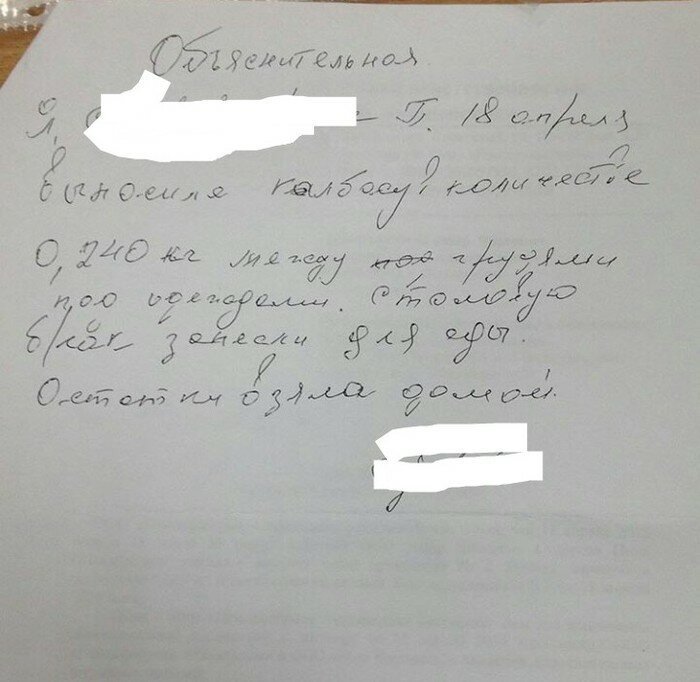 Объяснительная
Я, П. 18 апреля
выносила колбосу, количестве
0,240 кг между грудями
под одеждами. Столовую
б/лок занесли для еды.
Остатки взяла домой.